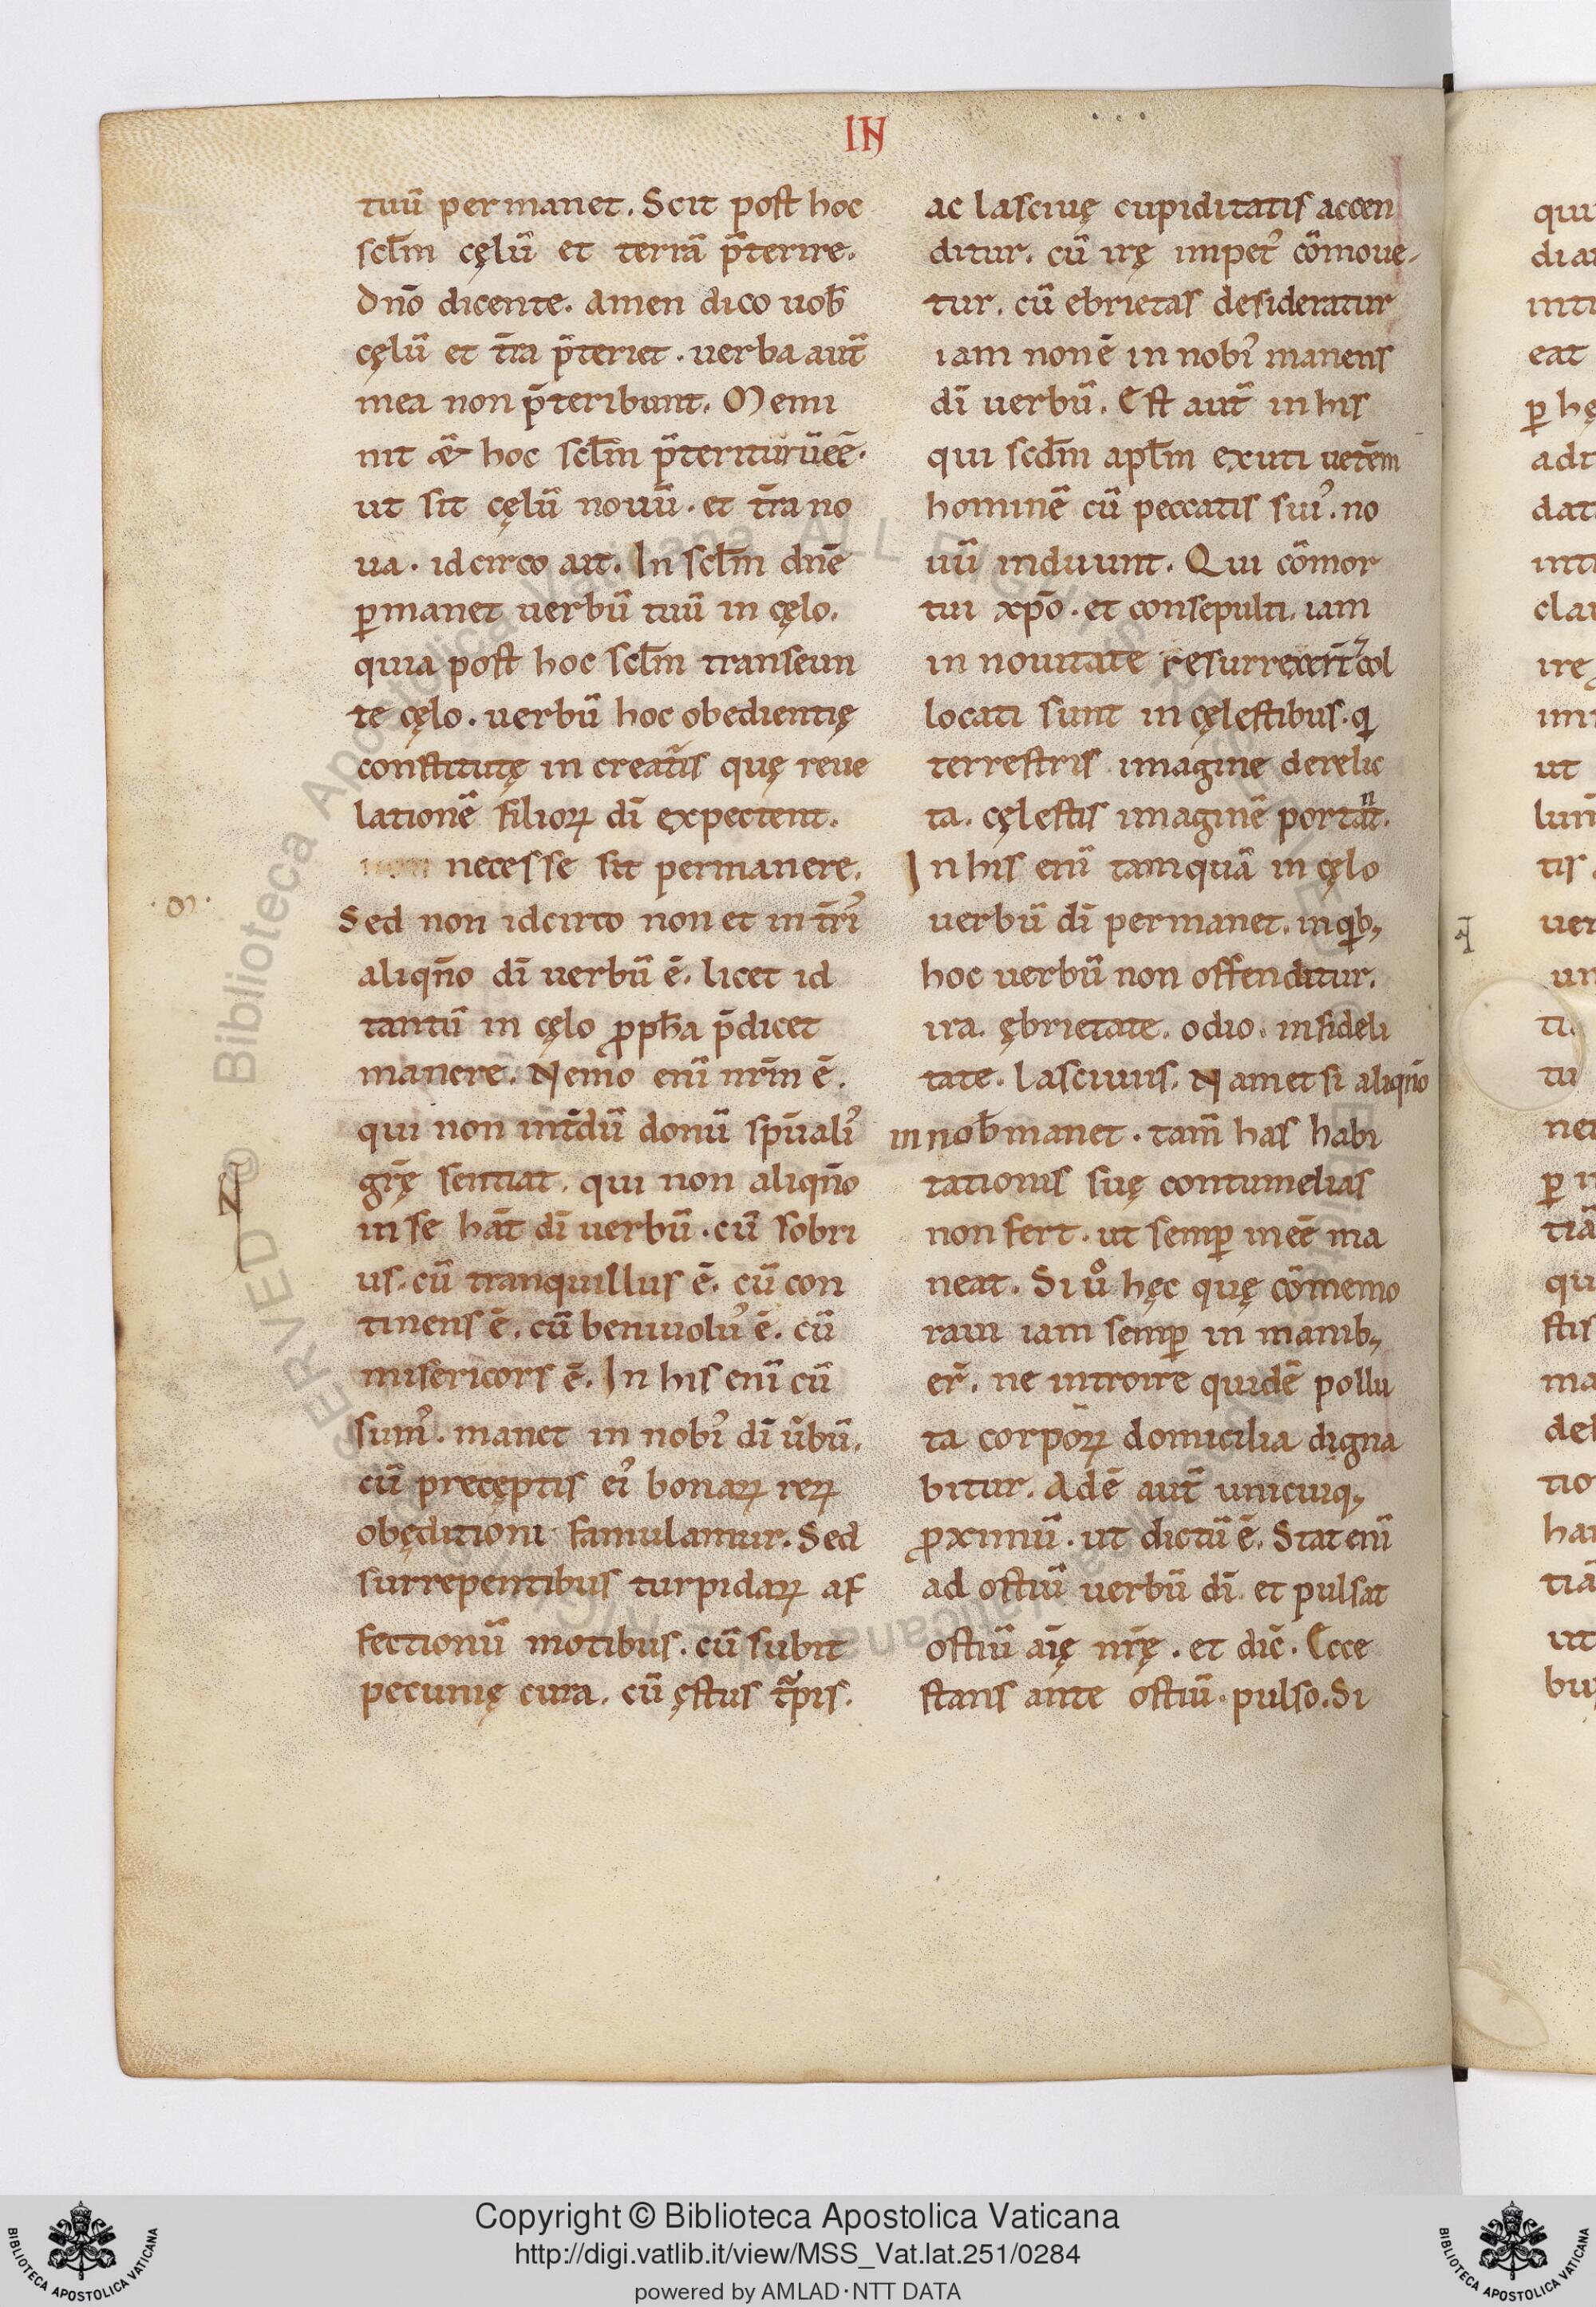 IN
tuū permanet. Scit post hoc
sclm̄ cęlū et terrā p̄terire.
Dnō dicente. Amen dico uob̄
cęlū et tr̄a p̄teriet. uerba aut̄
mea non p̄teribunt. Memi
nit & hoc sclm̄ p̄teriturū eē.
ut sit cęlū nouū. et tr̄a no
ua. idcirco ait. In sclm̄ dnē
ꝑmanet uerbū tuū in cęlo.
quia post hoc sclm̄ transeun
te cęlo. uerbū hoc obedientię
constitutę in creat̄is quę reue
lationē filioꝝ dī expectent.
necesse sit permanere.
Sed non idcirco non et in tr̄ꝰ
aliqn̄o dī uerbū ē. licet id
tantū in cęlo ꝓph̄a p̄dicet
manere. Nemo enī nr̄m ē.
qui non int̄dū donū sp̄ualiꝰ
gr̄ę sentiat. qui non aliqn̄o
in se hāt dī uerbū. cū sobri
us. cū tranquillus ē. cū con
tinens ē. cū beniuoluꝰ ē. cū
misericors ē. In his enī cū
sumꝰ. manet in nobꝰ dī ūbū.
cū precęptis eiꝰ bonaꝝ reꝝ
obęditioni famulamur. Sed
surrepentibus turpidaꝝ af
fectionū motibus. cū subit
pecunię cura. cū ęstus t̄pis.
ac lasciuę cupiditatis accen
ditur. cū irę impetꝰ cōmoue-
tur. cū ebrietas desideratur
iam non ē in nobꝰ manens
dī uerbū. Est aut̄ in his
qui scdm̄ aplm̄ exuti uetēm
hominē cū peccatis suiꝰ. no
uū induunt. Qui cōmor
tui xpō. et consepulti. iam
in nouitate resurrexert̄ ⁊ col
locati sunt in cęlestibus. qi
terrestris imagine derelic
ta. cęlestis imaginē portant.
In his enī tamquā in cęlo
uerbū dī permanet. in qib;
hoc uerbū non offenditur.
ira. ębrietate. odio. infideli
tate. lasciuiis. Nam et si aliqn̄o
in nob̄ manet. tam̄ has habi
tationis suę contumelias
non fert. ut semꝑ in eē ma
neat. Si uͦ hęc quę cōmemo
raui iam semꝑ in manib;
er̄. ne introire quidē pollu
ta corpoꝝ domicilia digna
bitur. Adē aut̄ unicuiq;
ꝓximū. ut dictū ē. Stat enī
ad ostiū uerbū dī. et pulsat
ostiū aīę nr̄ę. et dic̄. Ecce
stans ante ostiū. pulso. Si
Copyright © Biblioteca Apostolica Vaticana
http://digi.vatlib.it/view/MSS_Vat.lat.251/0284
powered by AMLAD·NTT DATA
BIBLIOTECA APOSTOLICA VATICANA
BIBLIOTECA APOSTOLICA VATICANA